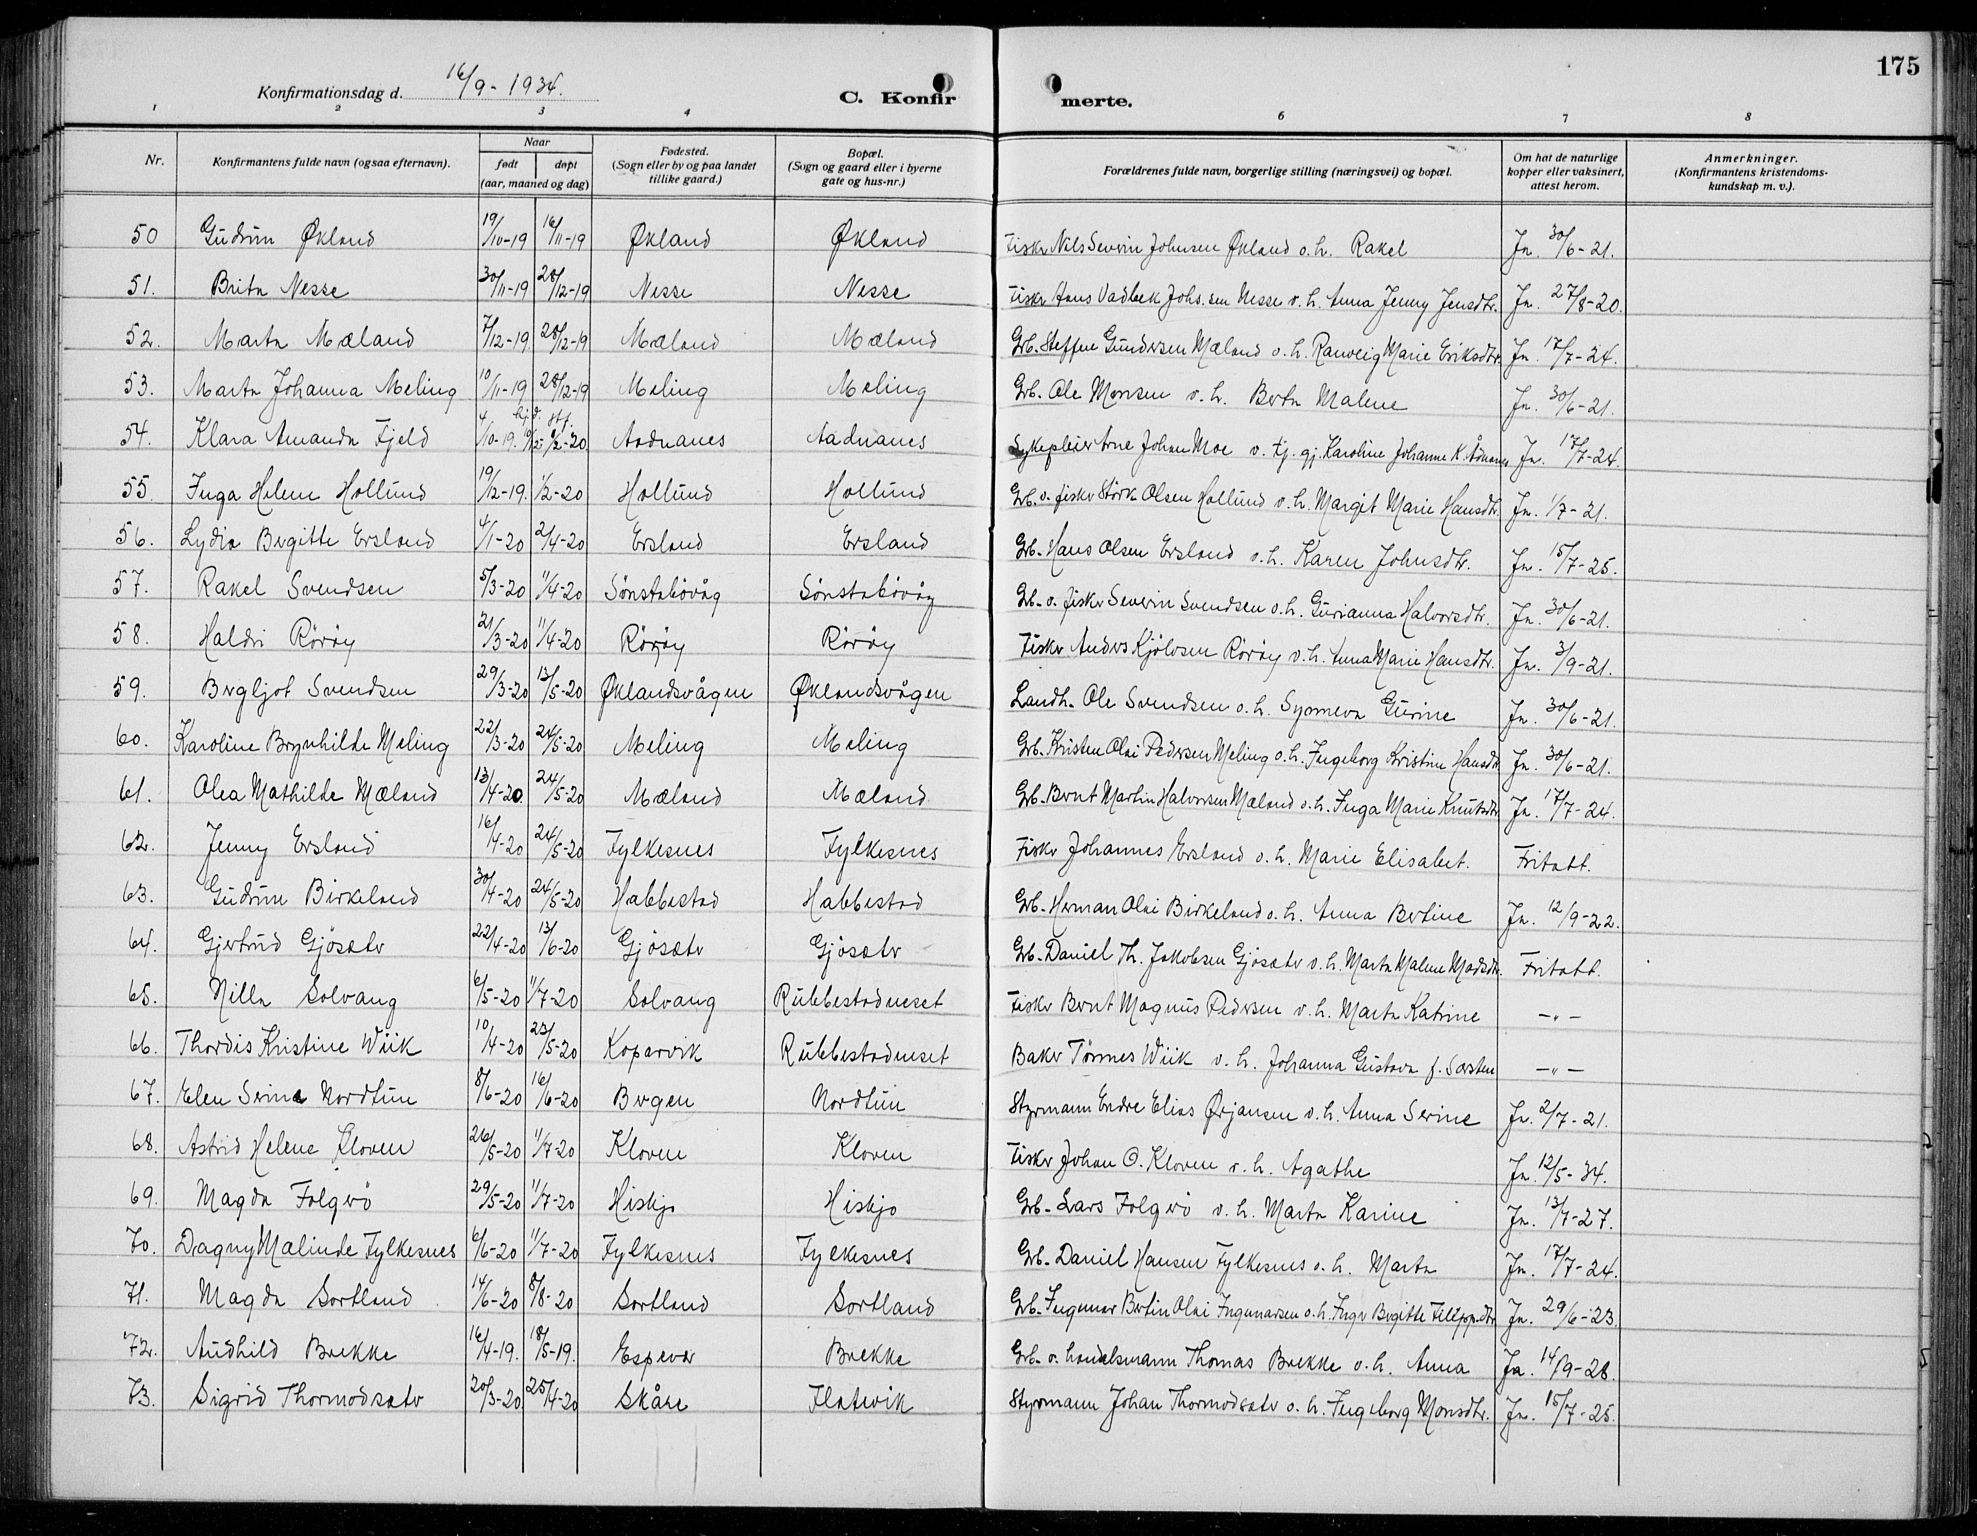 175
Konfirmationsdag d. 16/9 - 1934.
C. Konfirmerte.
1 2 3 4 6 7 8
Nr. | Konfirmantens fulde navn (ogsaa efternavn). | Naar født | døpt (aar, maaned og dag) | Fødested. (Sogn eller by og paa landet tillike gaard.) | Bopæl. (Sogn og gaard eller i byerne gate og hus-nr.) | Forældrenes fulde navn, borgerlige stilling (næringsvei) og bopæl. | Om hat de naturlige kopper eller vaksinert, attest herom. | Anmerkninger. (Konfirmantens kristendoms-kundskap m. v.).
50 Gudrun Økland 19/10-19 16/11-19 Økland Økland Fisker Nils Severin Johnsen Økland o.h. Rakel Ja. 30/6-21.
51. Brita Nesse 30/11-19 28/12-19 Nesse Nesse Fisker Hans Vadbek Johs.sen Nesse o.h. Anna Jenny Jensdtr. Ja. 27/8-20.
52. Marta Mæland 7/12-19 28/12-19 Mæland Mæland Grb. Steffen Gundersen Mæland o.h. Ranveig Marie Eriksdtr. Ja. 17/7-24.
53. Marta Johanna Meling 10/11-19 28/12-19 Meling Meling Grb. Ole Monsen o.h. Berta Malene Ja. 30/6-21.
54. Klara Amanda Fjeld 4/10-19. hj.d. stf. /2-20 Aadnanes Aadnanes Sykepleier Arne Johan Moe o. tj. gj. Karoline Johanne K. Ådnanes Ja. 17/7-24.
55. Inga Helene Hollund 19/12-19. 1/2-20 Hollund Hollund Grb. o. fisker Störk Olsen Hollund o.h. Margit Marie Hansdtr. Ja. 1/7-21.
56. Lydia Bergitte Ersland 4/1-20 2/4-20 Ersland Ersland Grb. Hans Olsen Ersland o.h. Karen Johnsdtr. Ja. 15/7-25.
57. Rakel Svendsen 5/3-20 11/4-20 Sönstabövåg Sönstabövåg Grb. o. fisker Severin Svendsen o.h. Gurianna Halvorsdtr. Ja. 30/6-21.
58. Haldri Röröy 21/3-20 11/4-20 Röröy Röröy Fisker Anders Kjölvsen Röröy o.h. Anna Marie Hansdtr. Ja. 3/9-21.
59. Bergljot Svendsen 29/3-20 13/5-20 Øklandsvågen Øklandsvågen Landh. Ole Svendsen o.h. Synneva Gurine Ja. 30/6-21.
60. Karoline Brynhilde Meling 22/3-20 24/5-20 Meling Meling Grb. Kristen Olai Pedersen Meling o.h. Ingeborg Kristine Hansdtr. Ja. 30/6-21.
61. Olea Mathilde Mæland 13/4-20 24/5-20 Mæland Mæland Grb. Bernt Martin Halvorsen Mæland o.h. Inga Marie Knutsdtr. Ja. 17/7-24.
62. Jenny Ersland 16/4-20 24/5-20 Fylkesnes Fylkesnes Fisker Johannes Ersland o.h. Marie Elisabet. Fritatt.
63. Gudrun Birkeland 30/4-20 24/5-20 Habbestad Habbestad Grb. Herman Olai Birkeland o.h. Anna Bertine Ja. 12/9-22.
64. Gjertrud Gjösæter 22/4-20 13/6-20 Gjösæter Gjösæter Grb. Daniel Th. Jakobsen Gjösæter o.h. Marta Malene Madsdtr. Fritatt.
65. Nilla Solvang 6/5-20 11/7-20 Solvang Rubbestadneset Fisker Bernt Magnus Pedersen o.h. Marta Katrine -"-
66. Thordis Kristine Wiik 10/4-20 23/5-20 Kopervik Rubbestadneset Baker Tönnes Wiik o.h. Johanna Gustava f. Sørsten -"-
67. Elen Serine Nordtun 8/6-20 16/6-20 Bergen Nordtun Styrmann Endre Elias Ørjansen o.h. Anna Serine Ja. 2/7-21.
68. Astrid Helene Kloven 26/5-20 11/7-20 Kloven Kloven Fisker Johan O. Kloven o.h. Agathe Ja. 12/5-34.
69. Magda Folgerö 29/5-20 11/7-20 Hiskjo Hiskjo Grb. Lars Folgerö o.h. Marta Karine Ja. 13/7-27.
70. Dagny Malinde Fylkesnes 6/6-20 11/7-20 Fylkesnes Fylkesnes Grb. Daniel Hansen Fylkesnes o.h. Marta Ja. 17/7-24.
71. Magda Sortland 14/6-20 8/8-20 Sortland Sortland Grb. Ingemar Bertin Olai Ingemarsen o.h. Inger Bergitte Filippsdtr. Ja. 29/6-23.
72. Audhild Brekke 16/4-19. 18/5-19. Espevær Brekke Grb. o. handelsmann Thomas Brekke o.h. Anna Ja. 14/9-28.
73. Sigrid Thormodsæter 20/3-20 25/4-20 Skåre Flatevik Styrmann Johan Thormodsæter o.h. Ingeborg Monsdtr. Ja. 15/7-25.